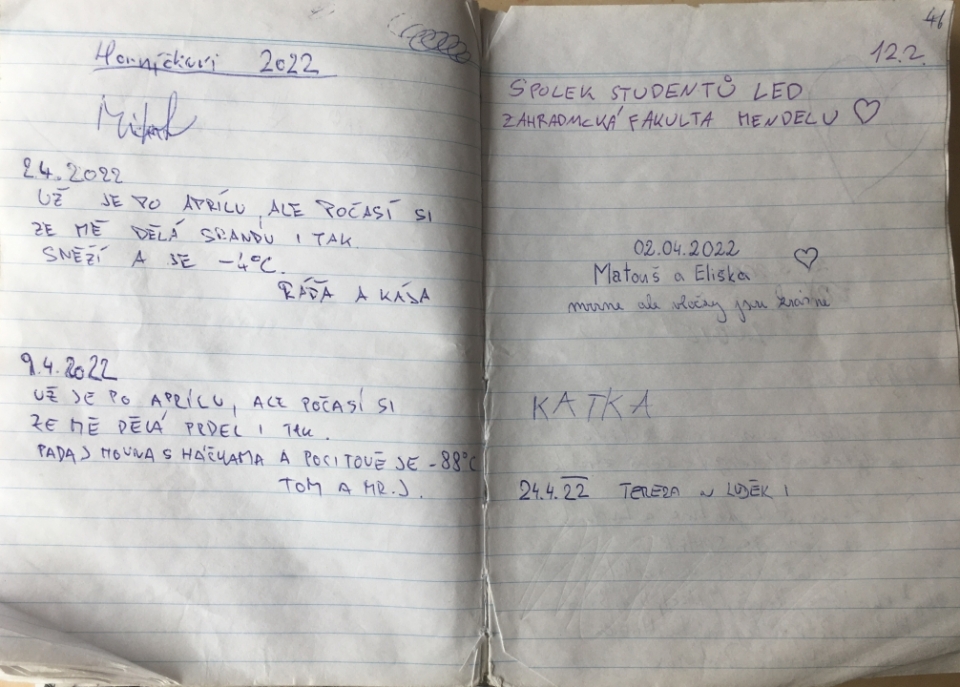 Horníčkovi 2022
2.4.2022
UŽ JE PO APRÍLU, ALE POČASÍ SI
ZE MĚ DĚLÁ SRANDU I TAK.
SNĚŽÍ A JE -4°C.
RÁĎA A KÁJA
9.4.2022
UŽ JE PO APRÍLU, ALE POČASÍ SI
ZE MĚ DĚLÁ PRDEL I TAK.
PADAJ HOVNA S HÁČKAMA A POCITOVĚ JE -88°C
TOM A MR.J.
46
12.2.
SPOLEK STUDENTŮ LED
ZAHRADNICKÁ FAKULTA MENDELU ♡
02.04.2022
Matouš a Eliška ♡
mrzne ale vločky jsou krásné
KATKA
24.4.22 TEREZA LUDĚK